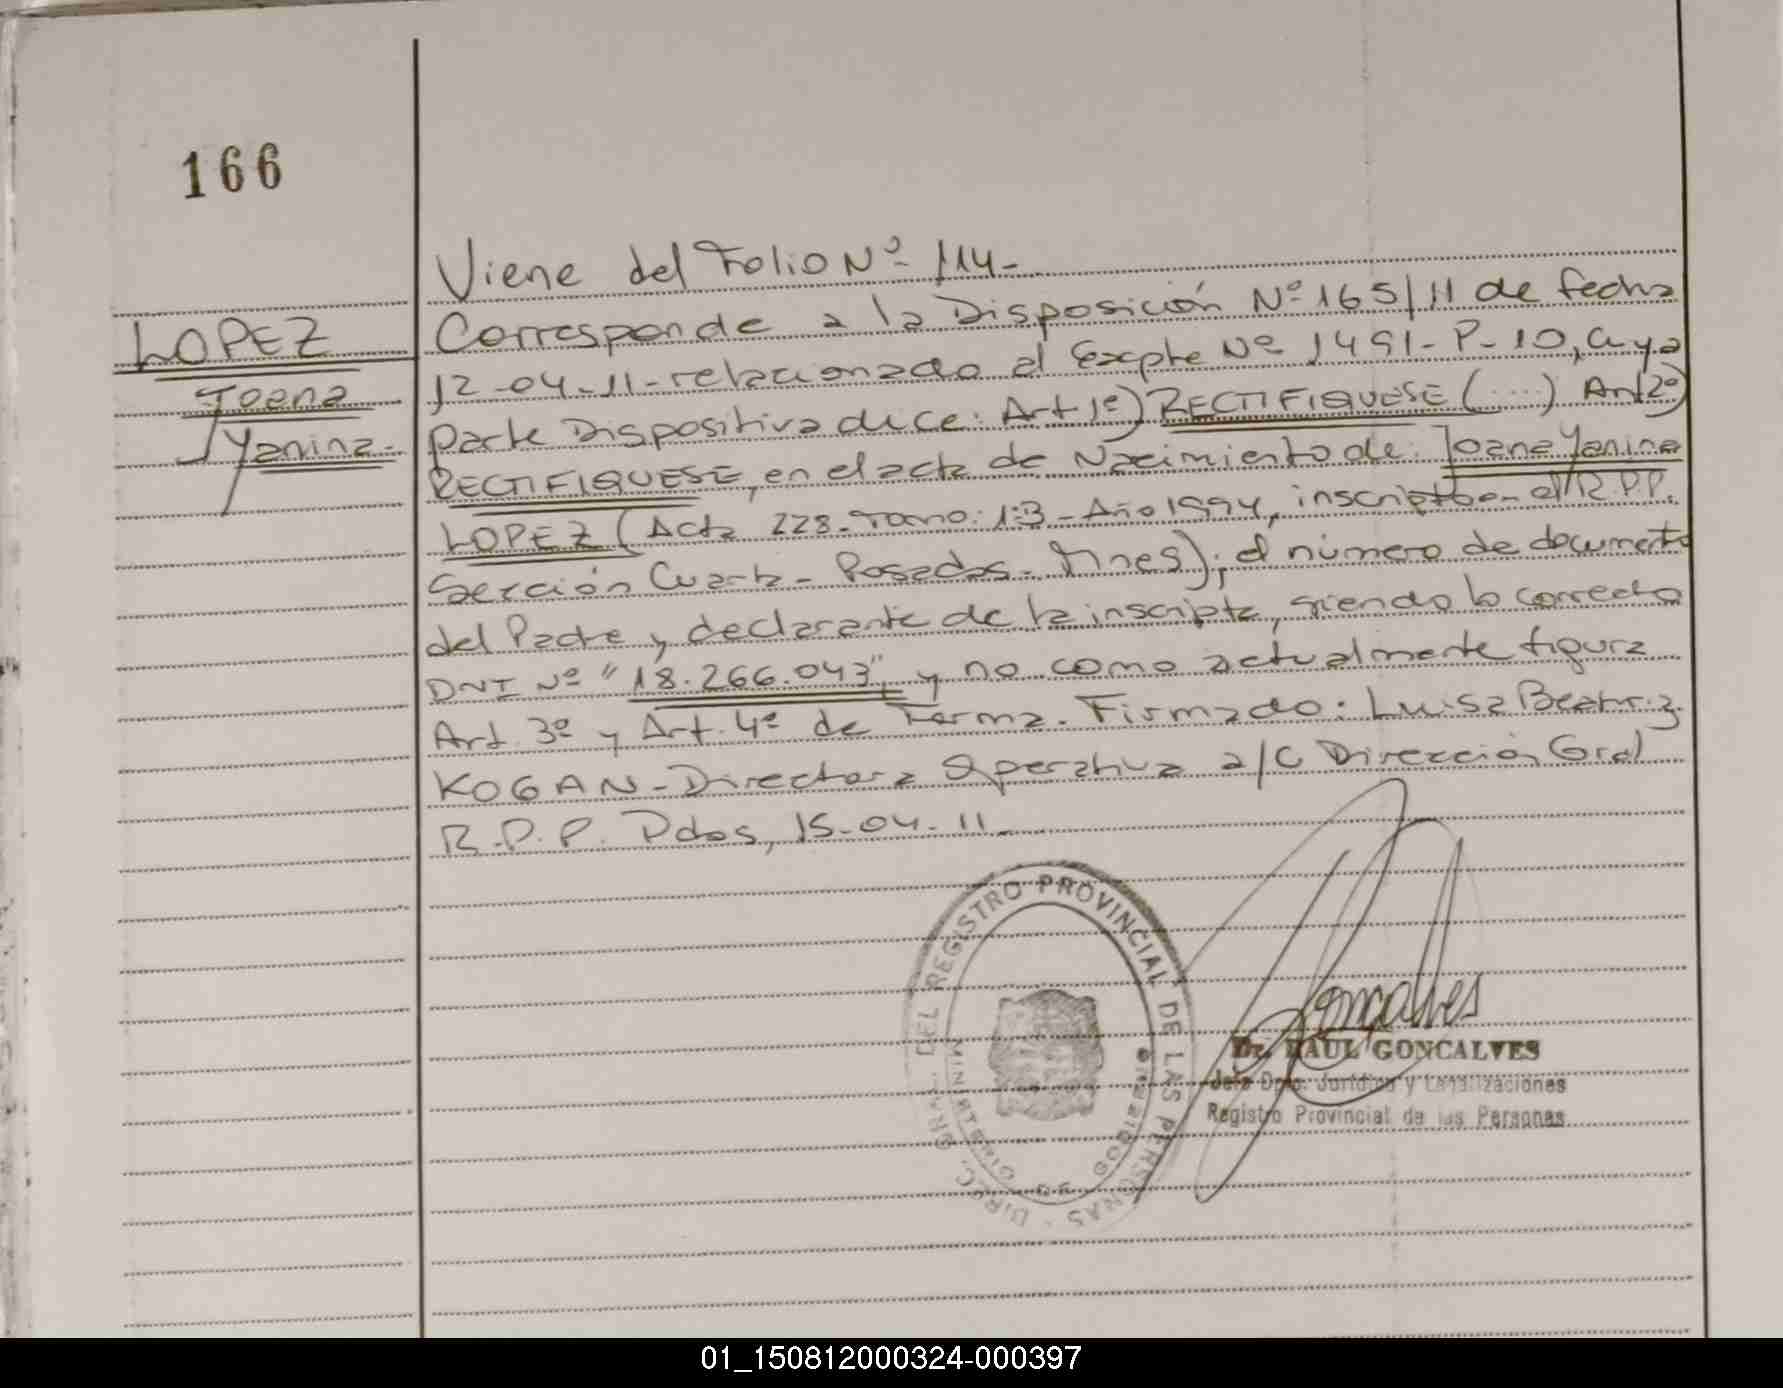 166
Viene del Folio Nº 114-
LOPEZ
Joana
Yanina-
Corresponde a la Disposición Nº 165/11 de fecha
12-04-11-relacionado al Expte Nº 1491-P-10, cuya
parte Dispositiva dice: Art 1º) RECTIFIQUESE (....) Art 2º)
RECTIFIQUESE, en el acta de Nacimiento de: Joana Yanina
LOPEZ (Acta 228-Tomo: 1:3-Año 1994, inscripta en el R.P.P.
Sección Cuarta-Posadas-Mnes); el número de documento
del Padre y declarante de la inscripta, siendo lo correcto
DNI Nº "18.266.043", y no como actualmente figura
Art. 3º y Art. 4º de Forma. Firmado: Luisa Beatriz
KOGAN-Directora Operativa a/C Dirección Gral
R.P.P. Pdas, 15-04-11-
DIREC. GRAL. DEL REGISTRO PROVINCIAL DE LAS PERSONAS
MINISTERIO DE
MISIONES
Goncalves
Dr. RAUL GONCALVES
Jefe Dpto. Jurídico y Legalizaciones
Registro Provincial de las Personas
01_150812000324-000397